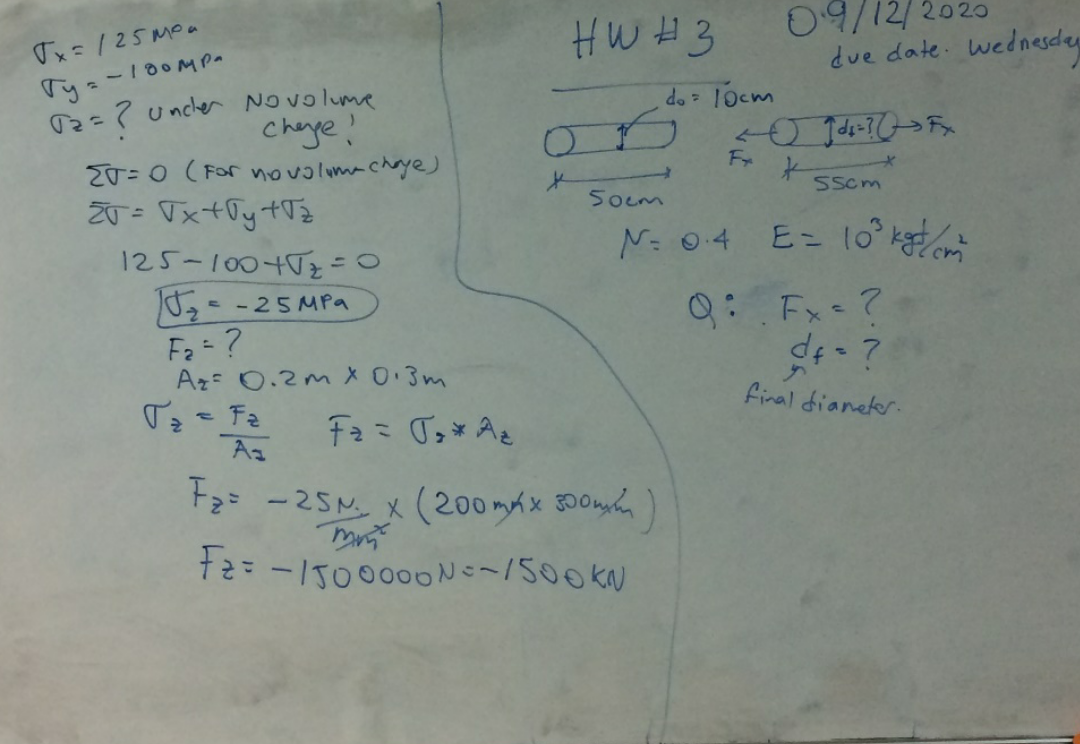 σx = 125 MPa
σy = -100 MPa
σz = ? under No volume
change!
Σσ = 0 (For no volume change)
Σσ = σx + σy + σz
125 - 100 + σz = 0
σz = -25 MPa
Fz = ?
Az = 0.2m × 0.3m
σz = Fz/Az   Fz = σz * Az
Fz = -25 N/mm² × (200mm × 300mm)
Fz = -1500000N = -1500 KN
HW #3   09/12/2020
due date. Wednesday
d₀ = 10cm
df = ?
Fx
Fx
50cm
55cm
N = 0.4   E = 10³ kgf/cm²
Q: Fx = ?
df = ?
final diameter.